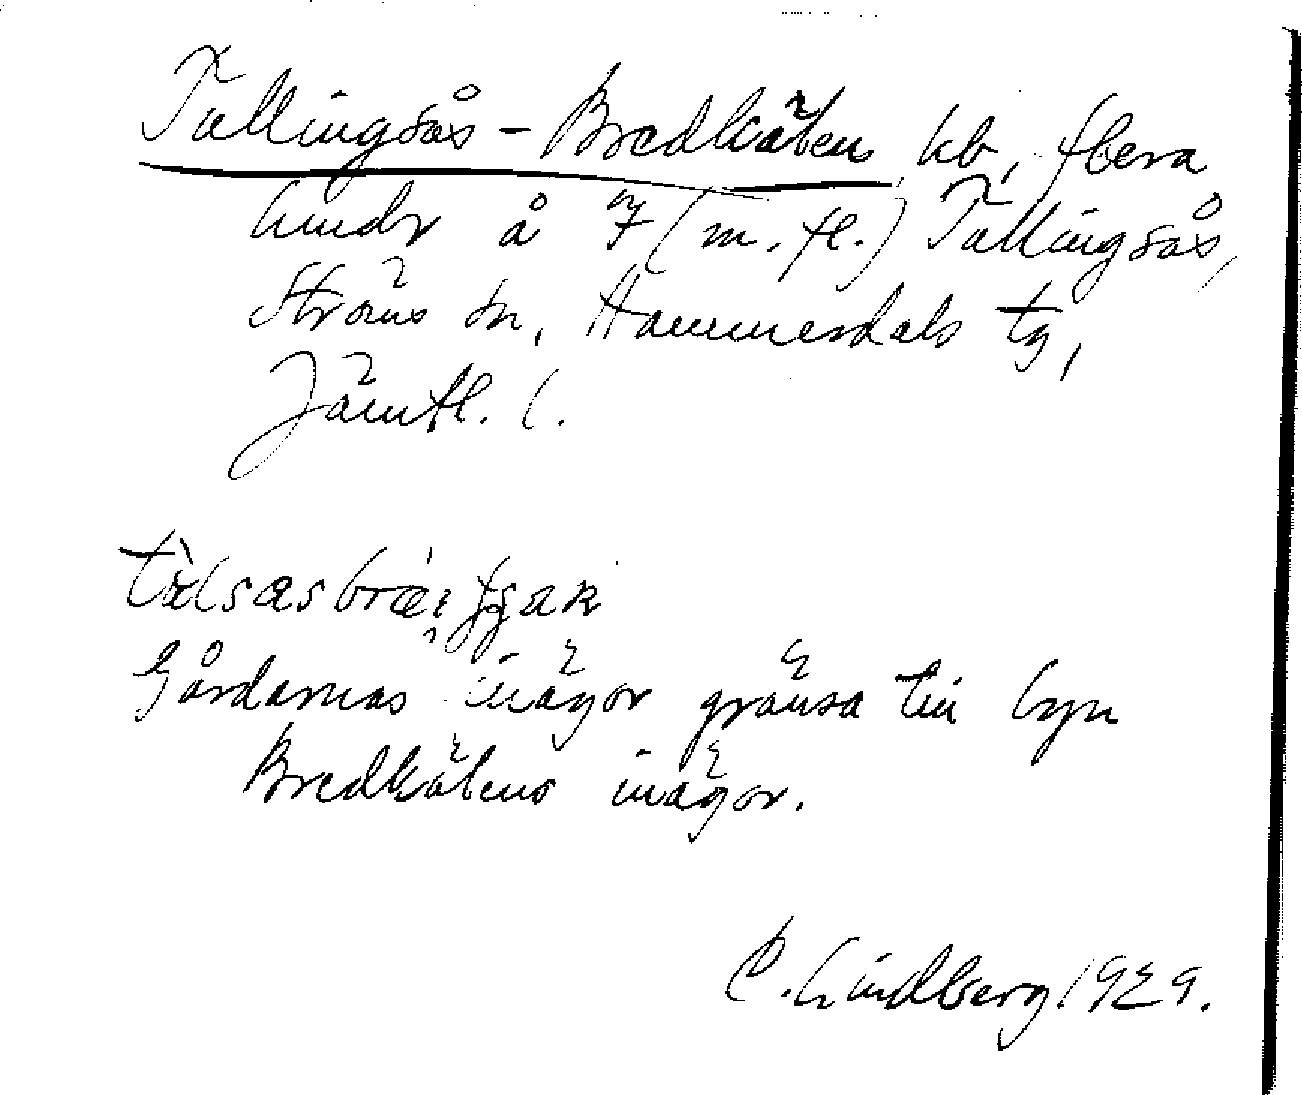 Tullingsås - Bredkälen, kb, flera
hmdr å 7 (m. fl.) Tullingsås,
Ströms sn, Hammerdals tg,
Jämtl. l.
Gårdarnas inägor gränsa till byn
Bredkälens inägor.
C. Lindberg 1929.